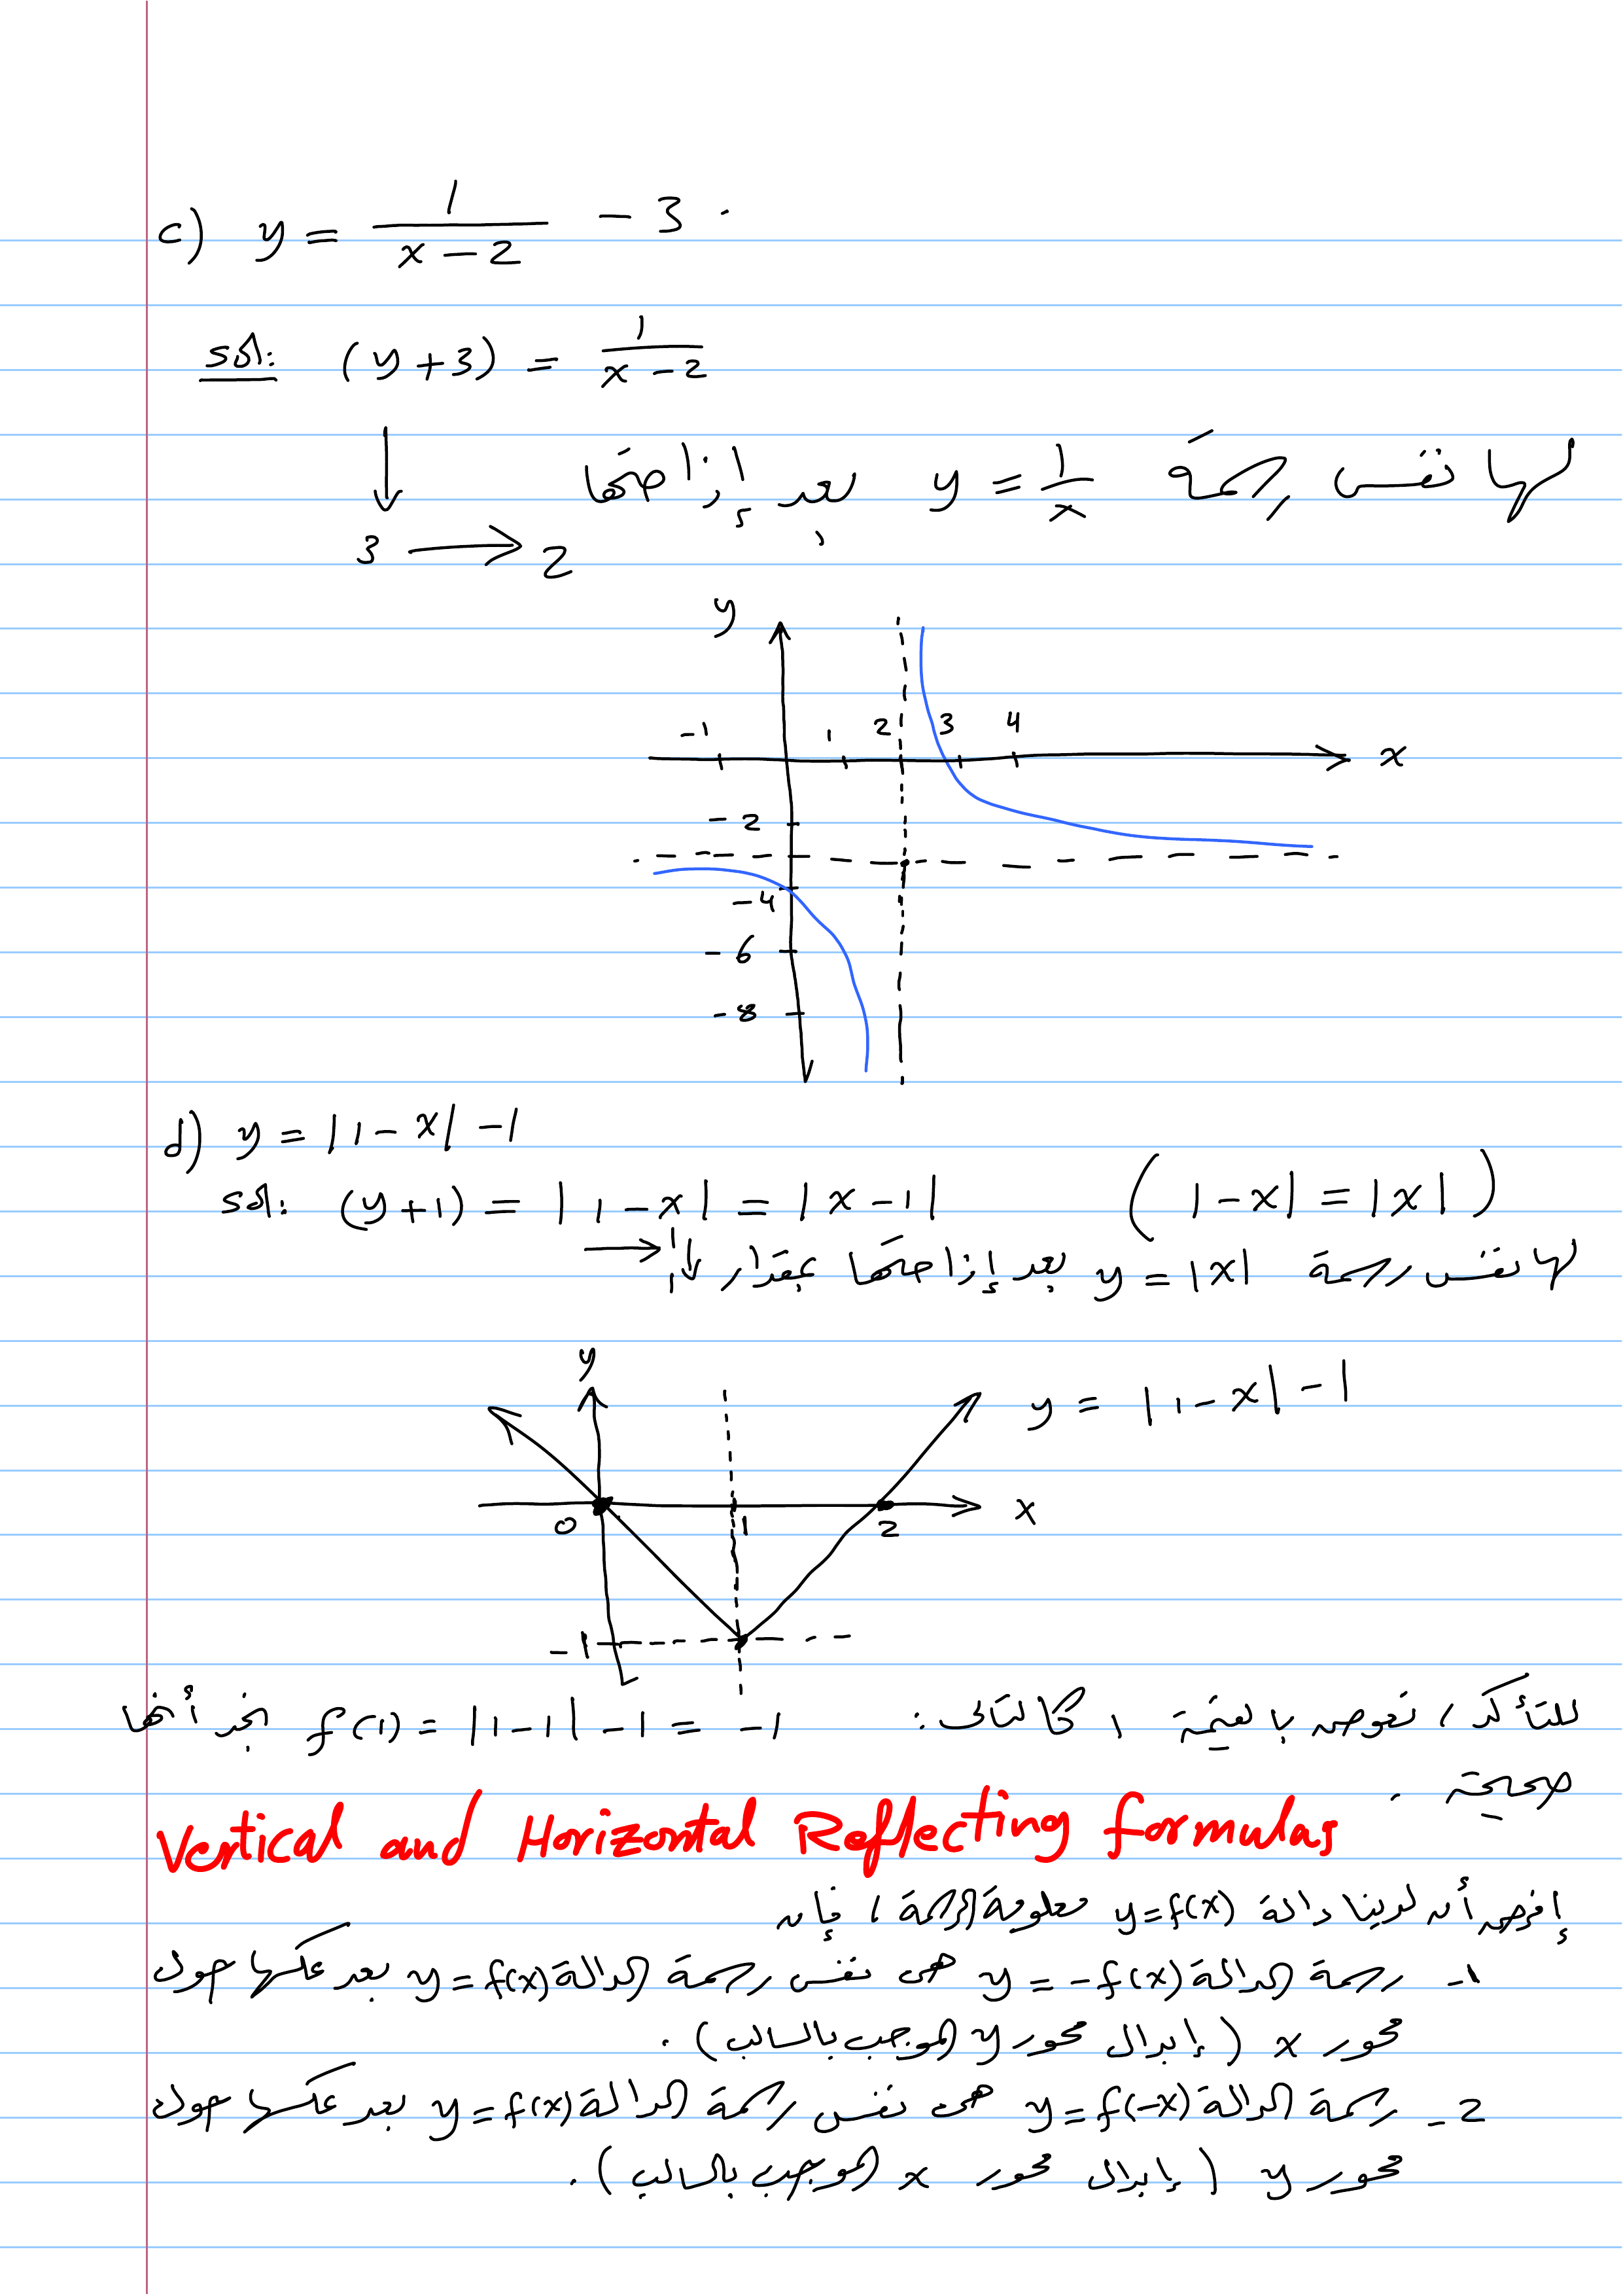 c) y = 1/(x-2) - 3 .
sol: (y+3) = 1/(x-2)
لها نفس رسمة y = 1/x بعد إزاحتها
↓ 3 → 2
y
-1 1 2 3 4 x
-2
-4
-6
-8
d) y = |1-x| -1
sol: (y+1) = |1-x| = |x-1| (|-x| = |x|)
لها نفس رسمة y = |x| بعد إزاحتها بمقدار ↓1 →1
y
y = |1-x| -1
0 1 2 x
-1
للتأكد، نعوض بالقيمة 1 كالتالى: f(1) = |1-1| -1 = -1 نجد أنها
صحيحة .
Vertical and Horizontal Reflecting formulas
إفرض أن لدينا دالة y=f(x) معلومة الرسمة، فإن
1- رسمة الدالة y = -f(x) هى نفس رسمة الدالة y=f(x) بعد عكسها حول
محور x (إبدال محور y الموجب بالسالب).
2- رسمة الدالة y=f(-x) هى نفس رسمة الدالة y=f(x) بعد عكسها حول
محور y (إبدال محور x الموجب بالسالب).